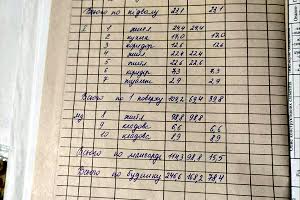 Всього по підвалу 23,1 23,1
1 1 житл. 29,4 29,4
2 кухня 17,0 17,0
3 коридор 12,6 12,6
4 житл. 22,4 22,4
5 житл. 22,6 22,6
6 коридор 7,3 7,3
7 туалет 2,9 2,9
Всього по 1 поверху 109,2 69,4 39,8
мз 8 житл. 98,8 98,8
9 кладова 6,6 6,6
10 кладова 8,9 8,9
Всього по мансарде 114,3 98,8 15,5
Всього по будинку 246,6 168,2 78,4